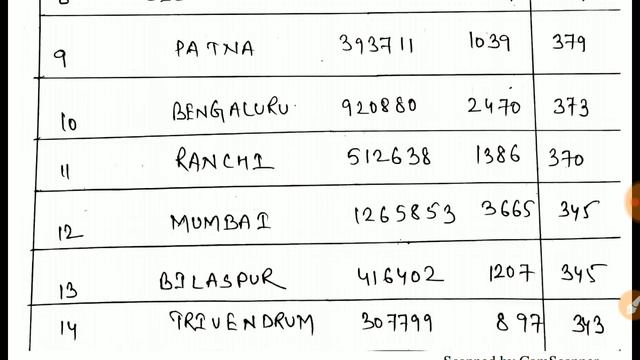 9 PATNA 393711 1039 379
10 BENGALURU 920880 2470 373
11 RANCHI 512638 1386 370
12 MUMBAI 1265853 3665 345
13 BILASPUR 416402 1207 345
14 TRIVENDRUM 307799 897 343